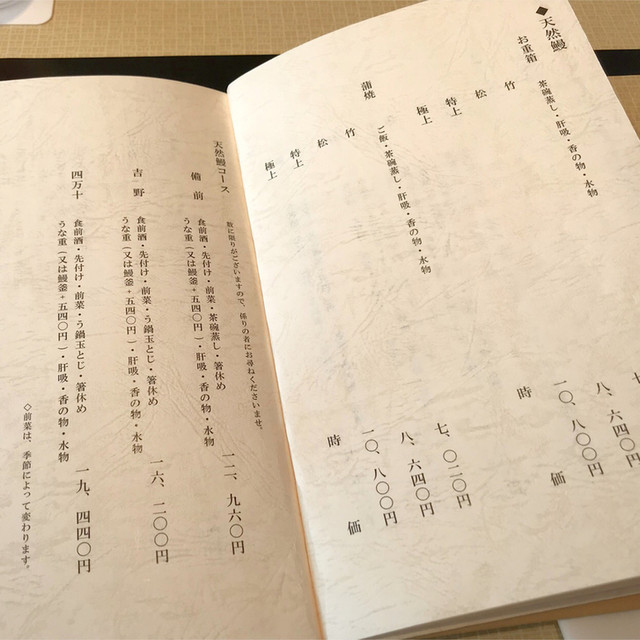 ◆天然鰻
お重箱
茶碗蒸し・肝吸・香の物・水物
竹
松 八、六四〇円
特上 一〇、八〇〇円
極上 時価
蒲焼
ご飯・茶碗蒸し・肝吸・香の物・水物
竹 七、〇二〇円
松 八、六四〇円
特上 一〇、八〇〇円
極上 時価
数に限りがございますので、係りの者にお尋ねくださいませ。
天然鰻コース
備前
食前酒・先付け・前菜・茶碗蒸し・箸休め
うな重(又は鰻釜+五四〇円)・肝吸・香の物・水物
一二、九六〇円
吉野
食前酒・先付け・前菜・う鍋玉とじ・箸休め
うな重(又は鰻釜+五四〇円)・肝吸・香の物・水物
一六、二〇〇円
四万十
食前酒・先付け・前菜・う鍋玉とじ・箸休め
うな重(又は鰻釜+五四〇円)・肝吸・香の物・水物
一九、四四〇円
◇前菜は、季節によって変わります。